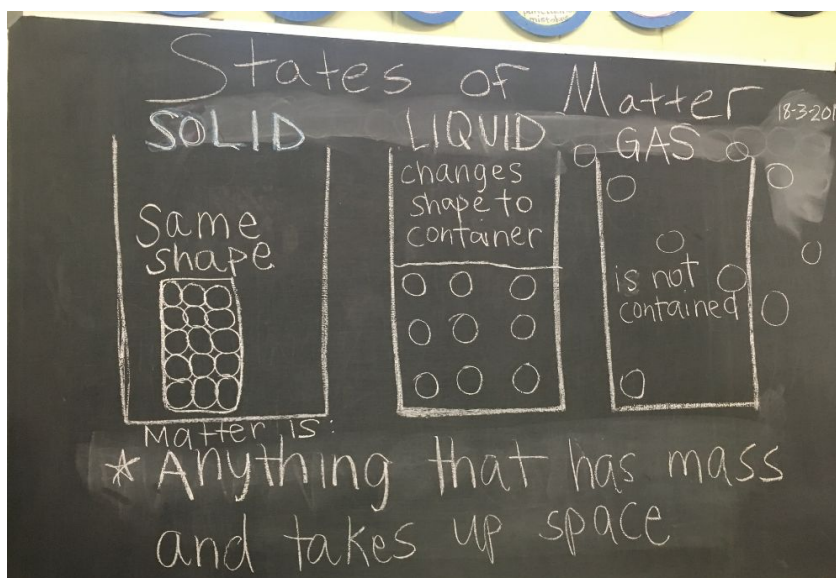 States of Matter
18-3-201
SOLID
Same
shape
LIQUID
changes
shape to
container
GAS
is not
contained
Matter is:
* Anything that has mass
and takes up space